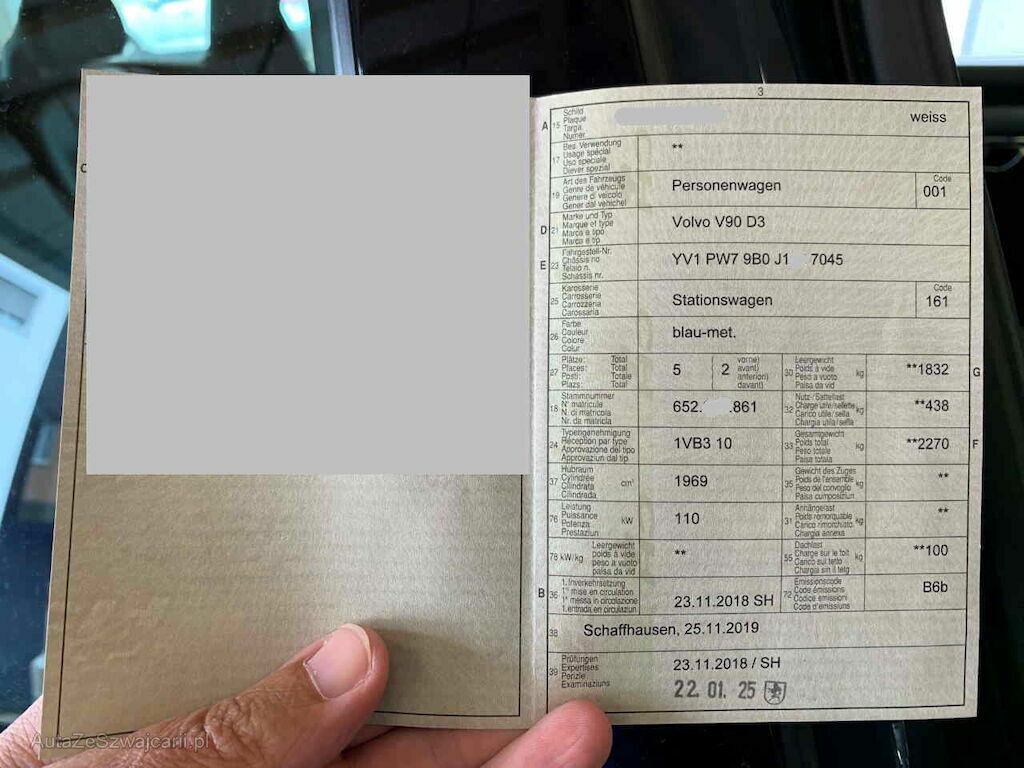 3
A 15 Schild
Plaque
Targa
Numer
weiss
17 Bes. Verwendung
Usage spécial
Uso speciale
Diever spezial
**
19 Art des Fahrzeugs
Genre de véhicule
Genere di veicolo
Gener dal vehichel
Personenwagen
Code
001
D 21 Marke und Typ
Marque et type
Marca e tipo
Marca e tip
Volvo V90 D3
E 23 Fahrgestell-Nr.
Châssis no
Telaio n.
Schassis nr.
YV1 PW7 9B0 J1 7045
25 Karosserie
Carrosserie
Carrozzeria
Carossaria
Stationswagen
Code
161
26 Farbe
Couleur
Colore
Colur
blau-met.
27 Plätze: Total
Places: Total
Posti: Totale
Plazs: Total
5 ( 2 vorne)
avant)
anteriori)
davant)
30 Leergewicht
Poids à vide
Peso a vuoto
Paisa da vid
kg
**1832 G
18 Stammnummer
N° matricule
N. di matricola
Nr. da matricla
652. .861
32 Nutz-/Sattellast
Charge utile/sellette
Carico utile/sella
Chargia utila/sella
kg
**438
24 Typengenehmigung
Réception par type
Approvazione del tipo
Approvaziun dal tip
1VB3 10
33 Gesamtgewicht
Poids total
Peso totale
Paisa totala
kg
**2270 F
37 Hubraum
Cylindrée
Cilindrata
Cilindrada
cm³
1969
35 Gewicht des Zuges
Poids de l'ensemble
Peso del convoglio
Paisa cumposiziun
kg
**
76 Leistung
Puissance
Potenza
Prestaziun
kW
110
31 Anhängelast
Poids remorquable
Carico rimorchiato
Chargia annexa
kg
**
78 kW/kg Leergewicht
poids à vide
peso a vuoto
paisa da vid
**
55 Dachlast
Charge sur le toit
Carico sul tetto
Chargia sin il tetg
kg
**100
B 36 1. Inverkehrsetzung
1re mise en circulation
1a messa in circolazione
1. entrada en circulaziun
23.11.2018 SH
72 Emissionscode
Code émissions
Codice emissioni
Code d'emissiuns
B6b
38 Schaffhausen, 25.11.2019
39 Prüfungen
Expertises
Perizie
Examinaziuns
23.11.2018 / SH
22. 01. 25
AutaZeSzwajcarii.pl